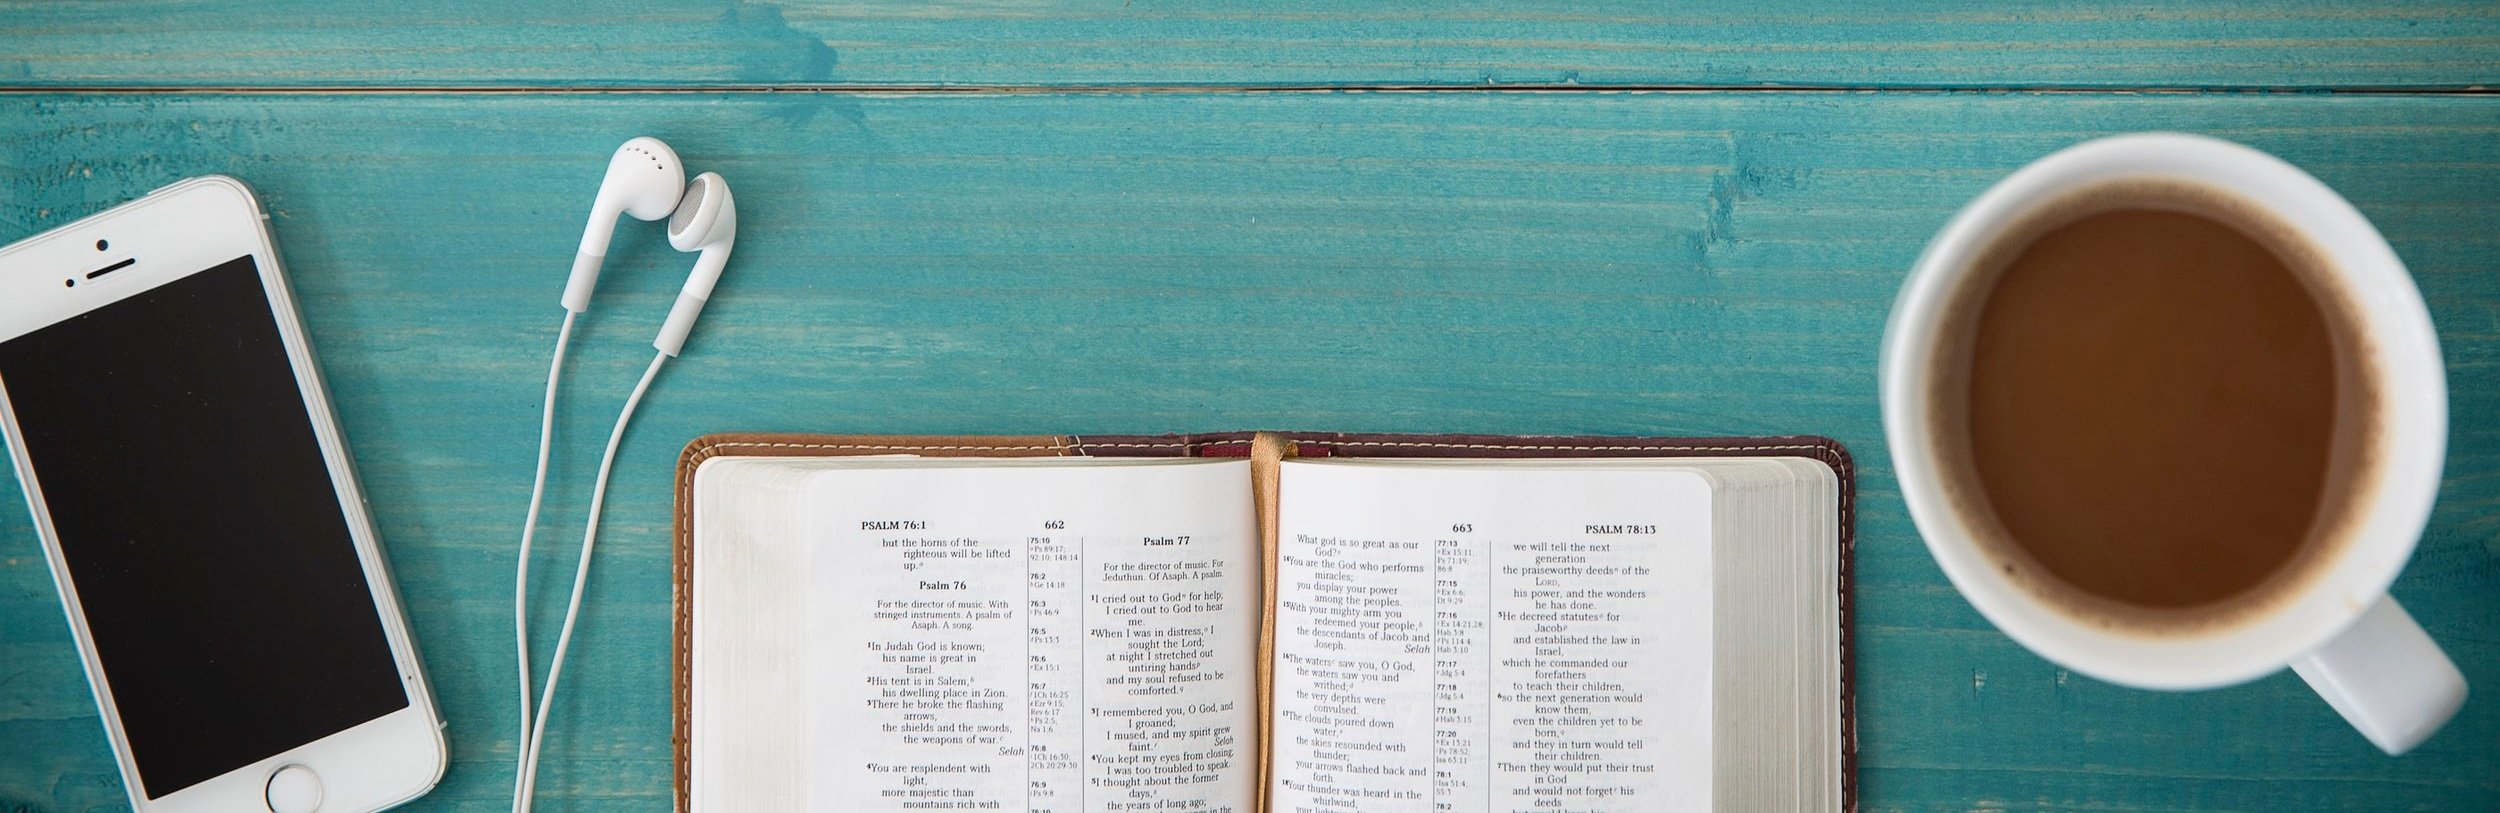 PSALM 76:1
662
but the horns of the
righteous will be lifted
up.
Psalm 76
For the director of music. With
stringed instruments. A psalm of
Asaph. A song.
1In Judah God is known;
his name is great in
Israel.
2His tent is in Salem,
his dwelling place in Zion.
3There he broke the flashing
arrows,
the shields and the swords,
the weapons of war.
Selah
4You are resplendent with
light,
more majestic than
mountains rich with
75:10
Ps 89:17;
92:10; 148:14
76:2
Ge 14:18
76:3
Ps 46:9
76:5
Ps 13:3
76:6
Ex 15:1
76:7
1Ch 16:25
Ezr 9:15;
Rev 6:17
Ps 2:5;
Na 1:6
76:8
1Ch 16:30;
2Ch 20:29-30
76:9
Ps 9:8
76:10
Psalm 77
For the director of music. For
Jeduthun. Of Asaph. A psalm.
1I cried out to God for help;
I cried out to God to hear
me.
2When I was in distress, I
sought the Lord;
at night I stretched out
untiring hands
and my soul refused to be
comforted.
3I remembered you, O God, and
I groaned;
I mused, and my spirit grew
faint. Selah
4You kept my eyes from closing;
I was too troubled to speak.
5I thought about the former
days,
the years of long ago;
663
PSALM 78:13
What god is so great as our
God?
14You are the God who performs
miracles;
you display your power
among the peoples.
15With your mighty arm you
redeemed your people,
the descendants of Jacob and
Joseph. Selah
16The waters saw you, O God,
the waters saw you and
writhed;
the very depths were
convulsed.
17The clouds poured down
water,
the skies resounded with
thunder;
your arrows flashed back and
forth.
18Your thunder was heard in the
whirlwind,
77:13
Ex 15:11;
Ps 71:19;
86:8
77:15
Ex 6:6;
Dt 9:29
77:16
Ex 14:21,28;
Hab 3:8
Ps 114:4;
Hab 3:10
77:17
Jdg 5:4
77:18
Jdg 5:4
77:19
Hab 3:15
77:20
Ex 13:21
Ps 78:52;
Isa 63:11
78:1
Isa 51:4;
55:3
78:2
we will tell the next
generation
the praiseworthy deeds of the
LORD,
his power, and the wonders
he has done.
5He decreed statutes for
Jacob
and established the law in
Israel,
which he commanded our
forefathers
to teach their children,
6so the next generation would
know them,
even the children yet to be
born,
and they in turn would tell
their children.
7Then they would put their trust
in God
and would not forget his
deeds